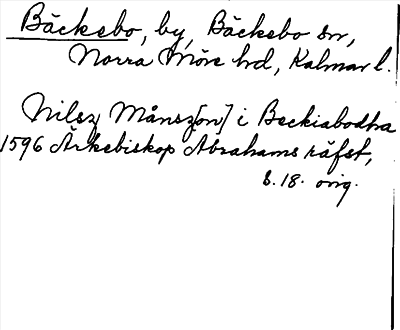 Bäcksbo, by, Bäcksbo sn,
Norra Möre hd, Kalmar l.
Nilsz Månsz[on] i Beckiabodha
1596 Ärkebiskop Abrahams räfst,
s. 18. orig.